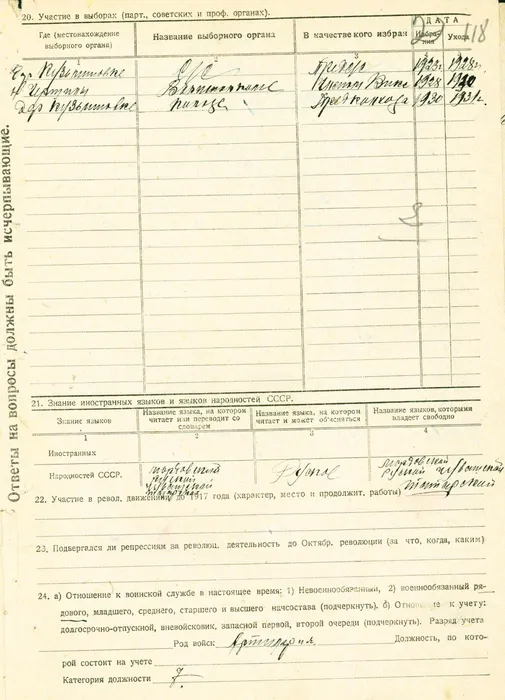 20. Участие в выборах (парт., советских и проф. органах).
118
Где (местонахождение выборного органа)
Название выборного органа
В качестве кого избран
ДАТА
Избрания
Ухода
1
2
3
1923г. 1928г.
1928 1930
Дер Кузьминовке 1930 1931г.
Ответы на вопросы должны быть исчерпывающие.
21. Знание иностранных языков и языков народностей СССР.
Знание языков
Название языка, на котором читает или переводит со словарем
Название языка, на котором читает и может объясняться
Название языков, которыми владеет свободно
1
2
3
4
Иностранных
Народностей СССР.
мордовский
русский
чувашский
татарский
Русское
мордовский
русский чувашский
татарский
22. Участие в револ. движении до 1917 года (характер, место и продолжит. работы)
23. Подвергался ли репрессиям за революц. деятельность до Октябр. революции (за что, когда, каким)
24. а) Отношение к воинской службе в настоящее время: 1) Невоеннообязанный, 2) военнообязанный ря-
дового, младшего, среднего, старшего и высшего начсостава (подчеркнуть). б) Отношение к учету:
долгосрочно-отпускной, вневойсковик, запасной первой, второй очереди (подчеркнуть). Разряд учета
Род войск Артилерия Должность, по кото-
рой состоит на учете
Категория должности 7